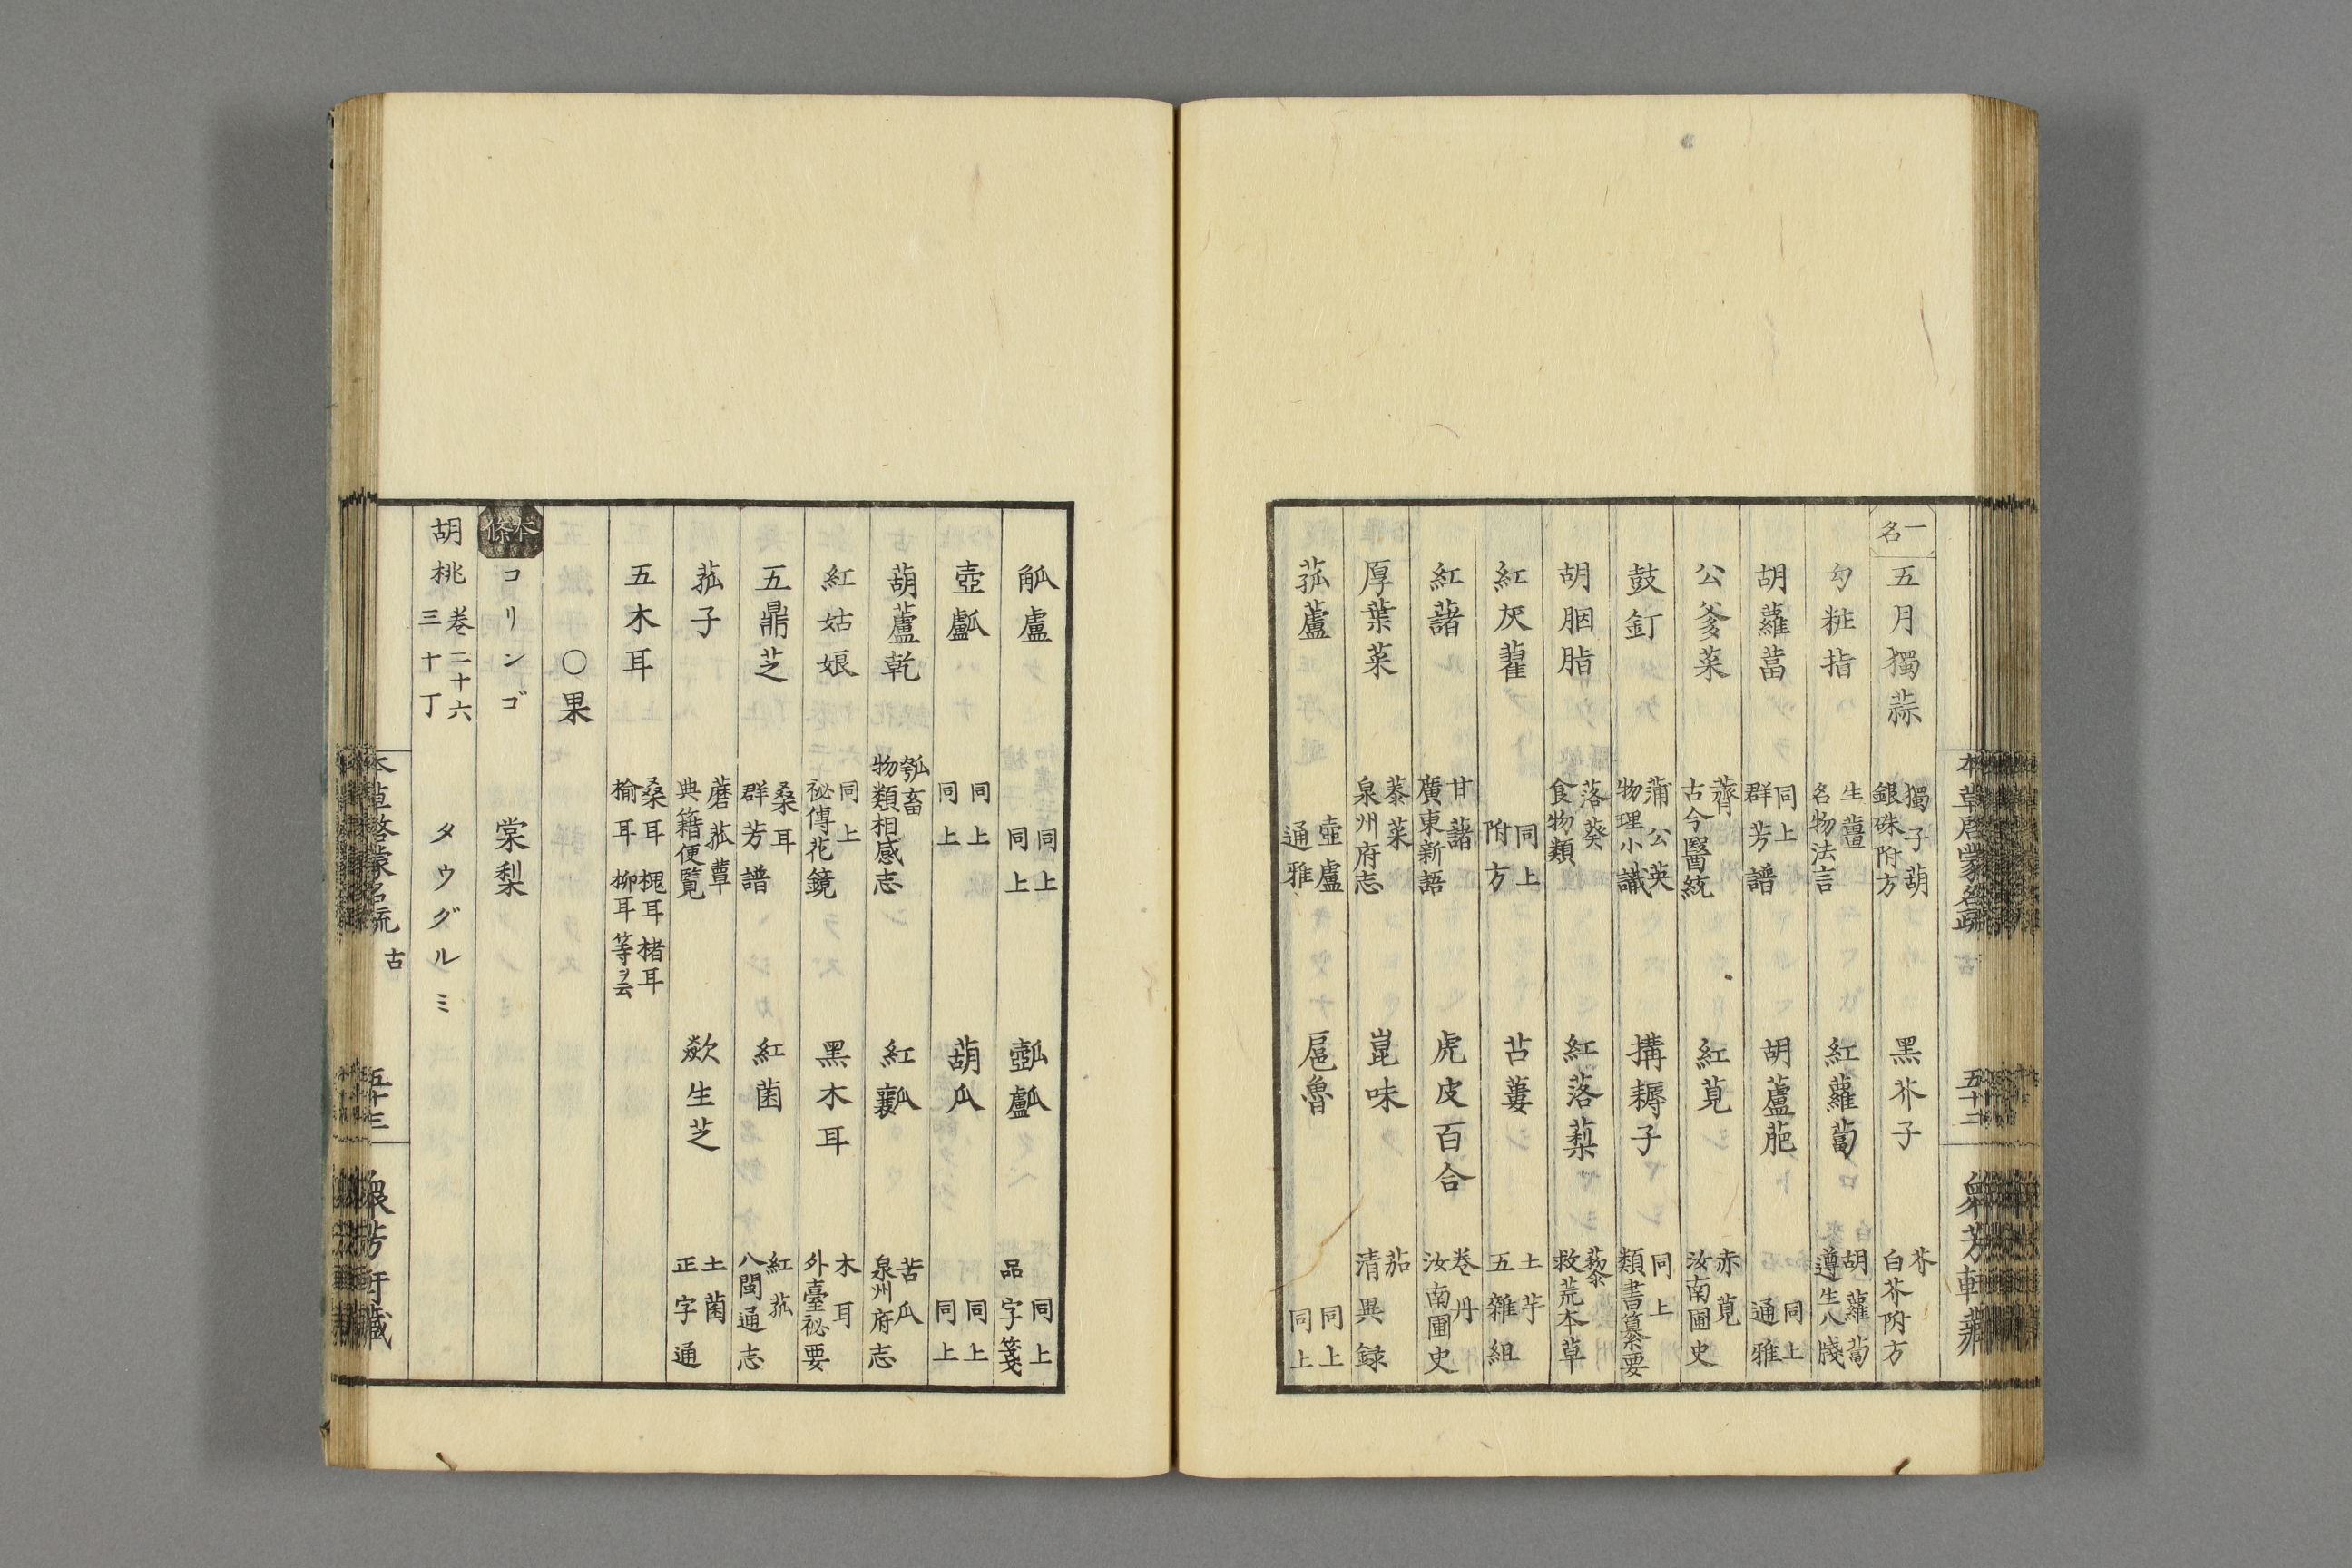 一名
五月獨蒜 獨子胡 銀硃附方 黑芥子 芥 白芥附方
勾粧指 生薑 名物法言 紅蘿蔔 胡蘿蔔 遵生八牋
胡蘿蔔 同上 群芳譜 胡蘆萉 同上 通雅
公爹菜 薺 古今醫統 紅莧 赤莧 汝南圃史
鼓釘 蒲公英 物理小識 搆耨子 同上 類書纂要
胡胭脂 落葵 食物類 紅落藜 藜 救荒本草
紅灰藋 同上 附方 苫蔞 土芋 五雜組
紅藷 甘藷 廣東新語 虎皮百合 巻丹 汝南圃史
厚葉菜 菾菜 泉州府志 崑味 茄 清異録
菰蘆 壺盧 通雅 扈魯 同上 同上
本草啓蒙名疏 古 五十二 衆芳軒藏
觚盧 同上 同上 同上 品字箋
壺 同上 同上 葫瓜 同上 同上
葫蘆乾 瓠畜 物類相感志 紅 苦瓜 泉州府志
紅姑娘 同上 祕傳花鏡 黑木耳 木耳 外臺祕要
五鼎芝 桑耳 群芳譜 紅菌 紅菰 八閩通志
菰子 蘑菰蕈 典籍便覽 歘生芝 土菌 正字通
五木耳 桑耳 槐耳 楮耳 榆耳 柳耳等ヲ云
○果
本條 コリンゴ 棠梨
胡桃 巻二十六 三十丁 タウグルミ
本草啓蒙名疏 古 五十三 衆芳軒藏